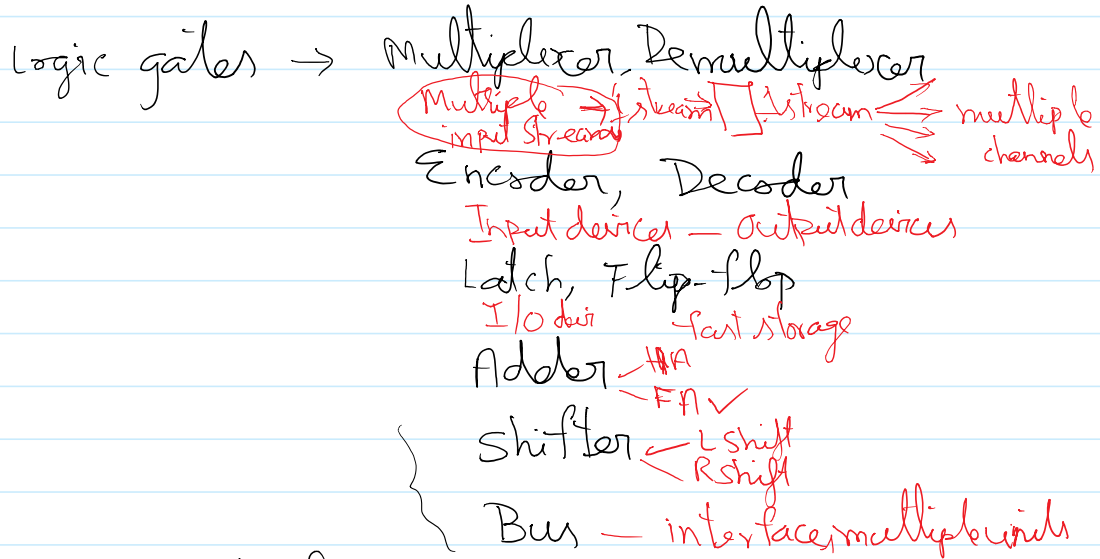 Logic gates → Multiplexer, Demultiplexer
Multiple → 1 stream → 1stream multiple
input streams channels
Encoder, Decoder
Input devices — output devices
Latch, Flip-flop
I/O dev fast storage
Adder HA
FA ✓
Shifter L Shift
R Shift
Bus — interfaces, multiple units